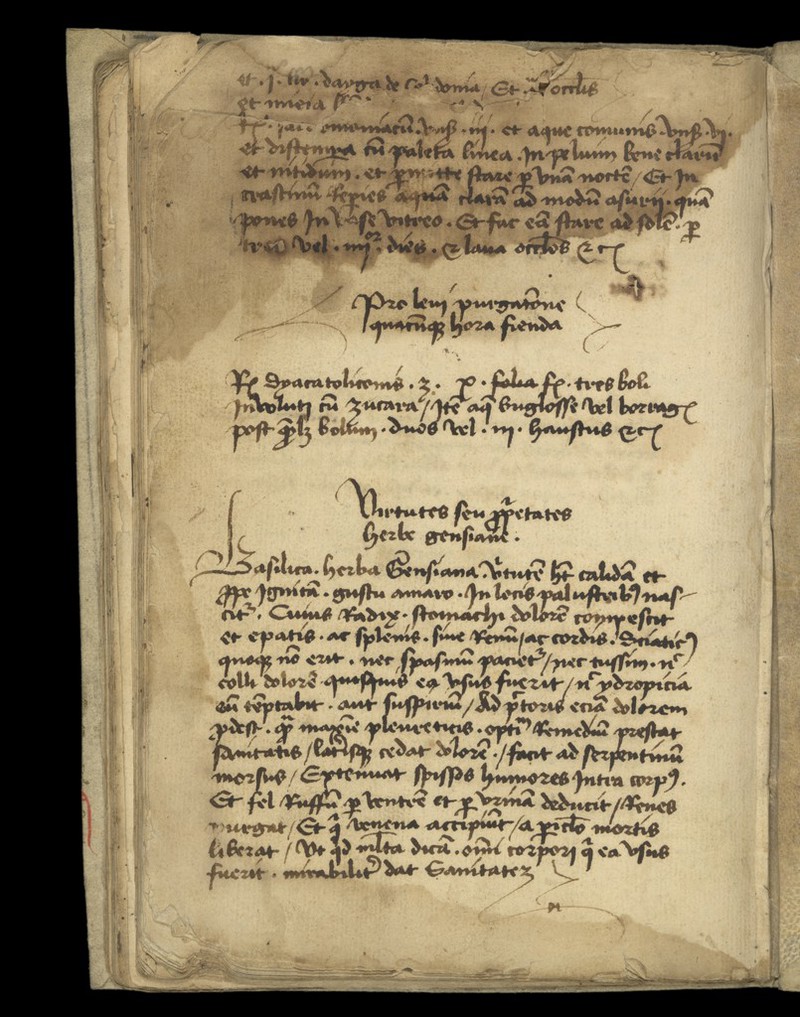 et micia
omoniacū. vnß .iii. et aque comunis. vnß .vi.
et distempra cū paleta linea. In peluim bene clarū
et nitidum. et pmitte stare p vnā noctē / Et In
crastinū repies aquā clarā ad modū asurij. quā
pones In vase vitreo. Et fac eā stare ad solē. p
tres vel .iiij. dies. & laua occlos &c
Pro leui purgatōne
quacūqȝ hora fienda
Rx dyacatoliconis. ʒ. x. folia tres boli
Inuoluti cū zucara / Itē aq̄ buglosse vel borrag
post bolum. duos vel .iii. haustus &c
Virtutes seu ppetates
herbe gensiane.
Basilica. herba Gensiana. vtutē ht calidā et
ppe Ignitā. gustu amaro. In locis palustribȝ nas-
cit. Cuius Radix. stomachi dolorē compescit
et epatis. ac splenis. siue Renū / ac cordis. Sciaticȝ
quoqȝ nō erit. nec spasmū paciet / nec tussim. nc
colli dolorē quisquis ea vsus fuerit / nc ydropicia
eū tēptabit. aut suspiriū / Ad pctoris eciā dolorem
pdest. maxīe pleureticis. optī Remediū prestat
sanitatis / latisqȝ cedat dolorē. / facit ad serpentinū
morsus / Extenuat spissos humores Intra corpȝ.
Et fel Ruffū p ventrē et p vrinā deducit / Renes
purgat / Et q venena accipiūt / a piclo mortis
liberat / Vt qd mlta dicā. omī corpori q ea vsus
fuerit. mirabilit dat Sanitateȝ